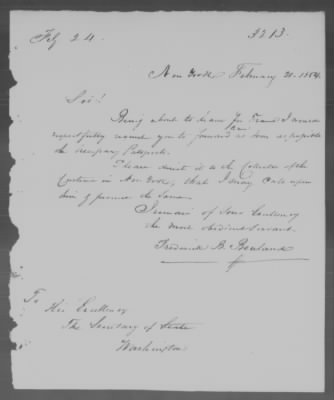 Feb 24.
3213.
New York February 20. 1854.
Sir!
Being about to leave for France I would
respectfully request you to forward as soon as possible
the necessary Passport.
Please direct it to the Collector of the
Customs in New York, that I may call upon
him & procure the same.
I remain of Your Excellency
the most obedient servant
Frederick B.
To
His Excellency
The Secretary of State
Washington